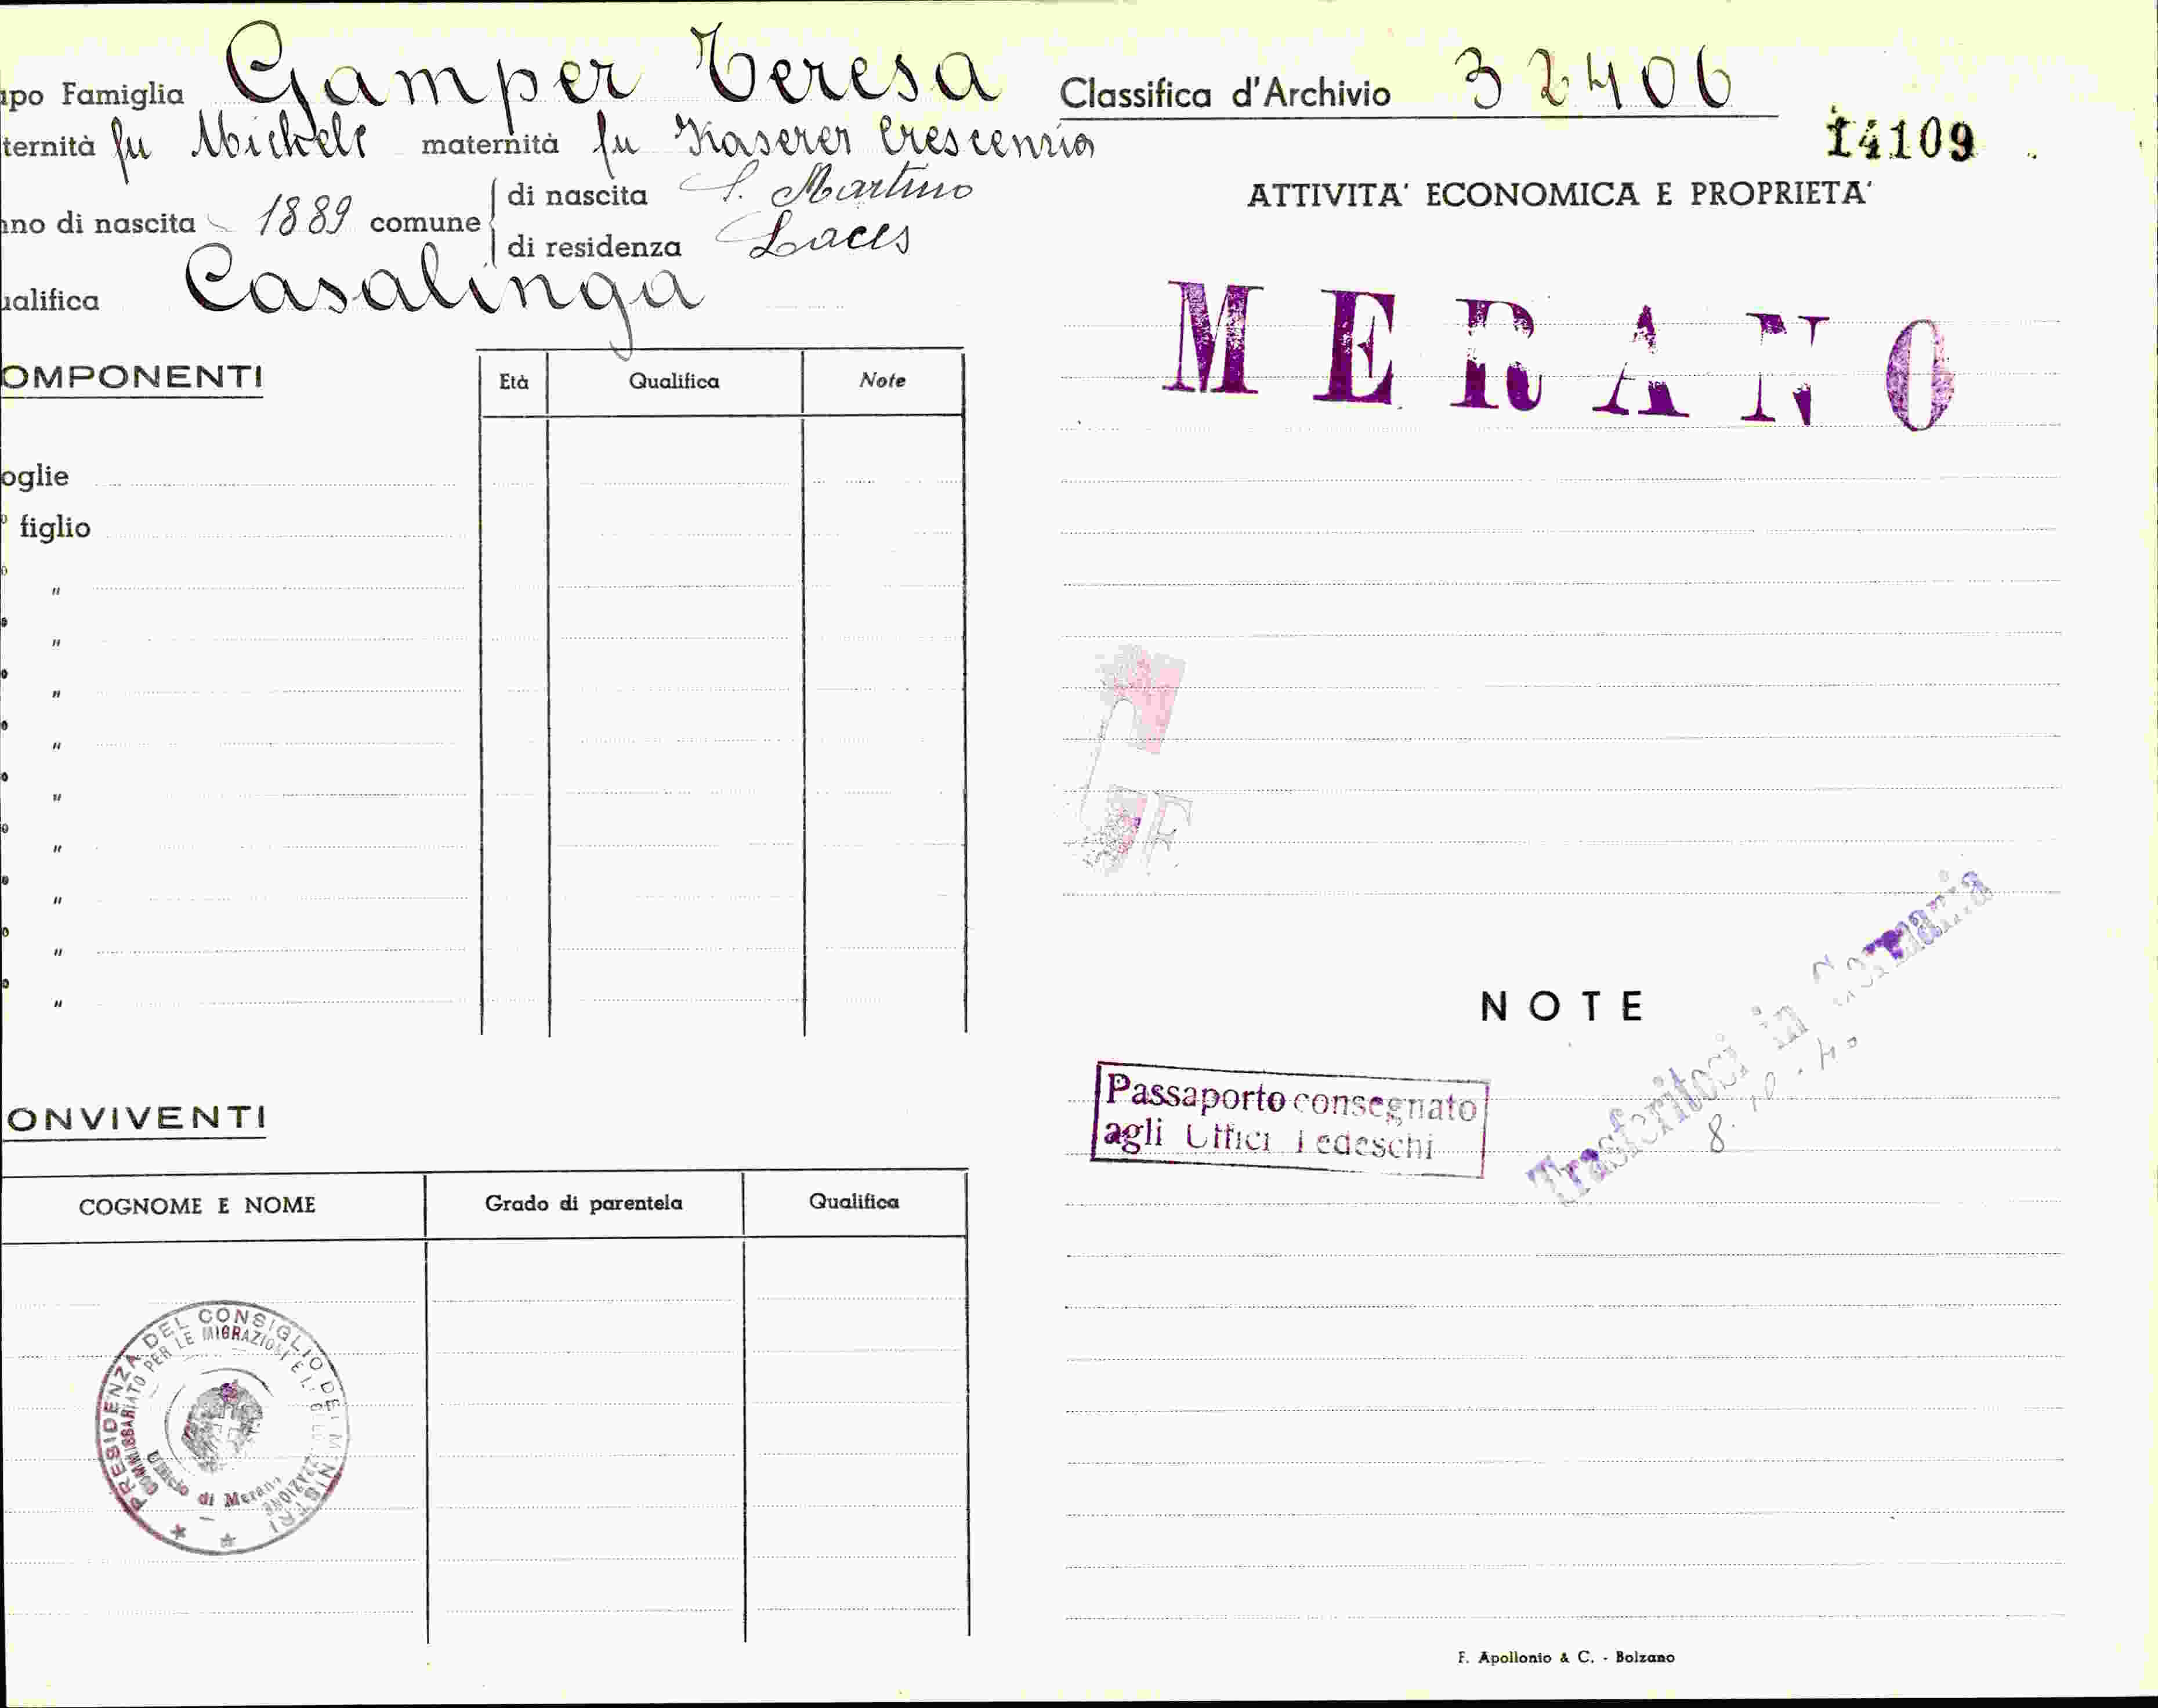 apo Famiglia Gamper Teresa
ternità fu Michele maternità fu Kaserer Crescenzia
nno di nascita 1889 comune di nascita S. Martino
di residenza Laces
ualifica Casalinga
OMPONENTI
Età Qualifica Note
oglie
figlio
"
"
"
"
"
"
"
"
"
ONVIVENTI
COGNOME E NOME Grado di parentela Qualifica
PRESIDENZA DEL CONSIGLIO DEI MINISTRI
COMMISSARIATO PER LE MIGRAZIONI E L'
Ufficio di Merano
Classifica d'Archivio 32406
14109
ATTIVITA' ECONOMICA E PROPRIETA'
MERANO
NOTE
Passaporto consegnato
agli Uffici Tedeschi
Trasferitosi in Germania
8.10.40
F. Apollonio & C. - Bolzano